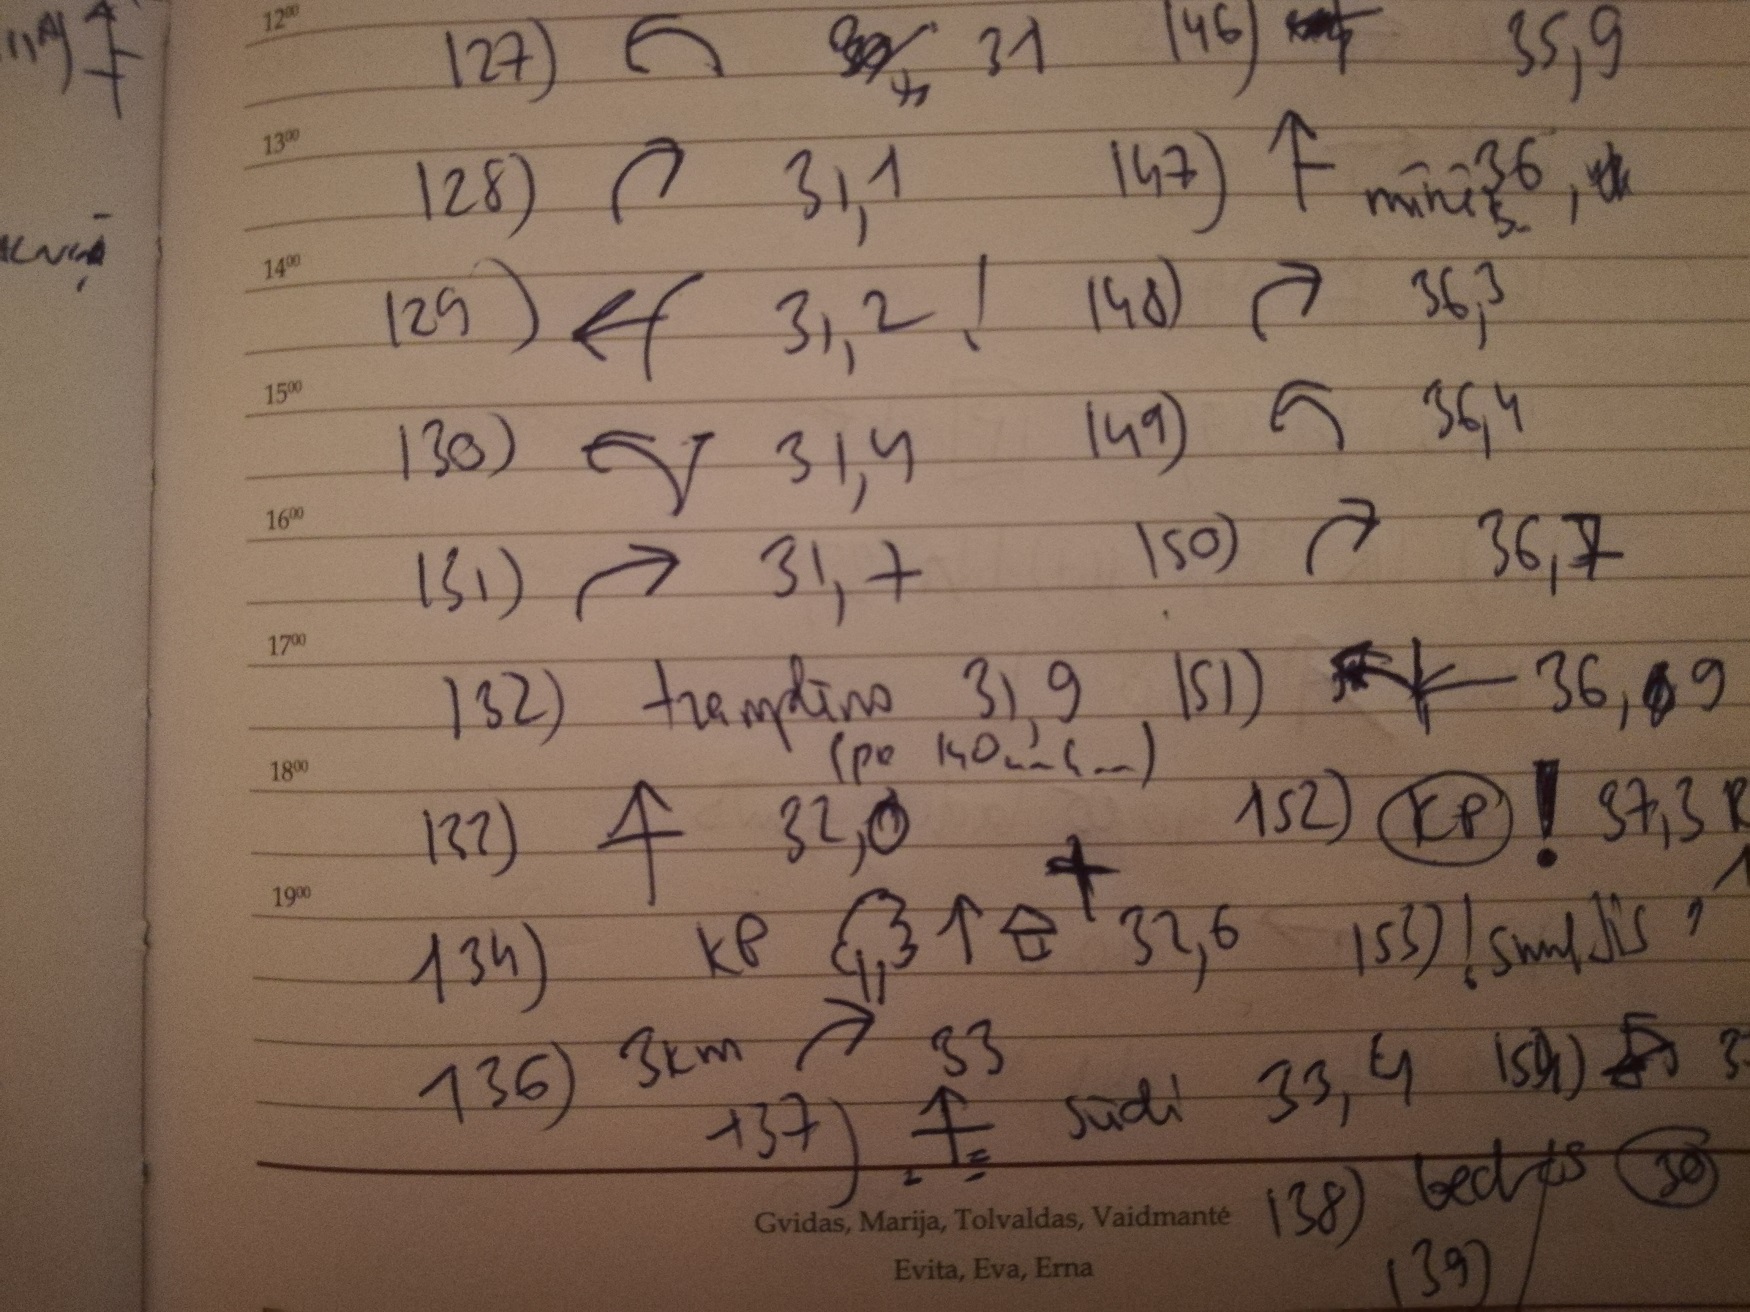 12⁰⁰
127) 31 146) 35,9
13⁰⁰
128) 31,1 147) 36,
14⁰⁰
129) 31,2 ! 148) 36,3
15⁰⁰
130) 31,4 149) 36,4
16⁰⁰
131) 31,7 150) 36,7
17⁰⁰
132) 31,9 151) 36,9
(po
18⁰⁰
32,0 152) KP ! 37,3
19⁰⁰
134) KP 32,6 153) !
136) 3km 33
137) sūdi 33,4 154)
138) bedrės 30
139)
Gvidas, Marija, Tolvaldas, Vaidmantė
Evita, Eva, Erna